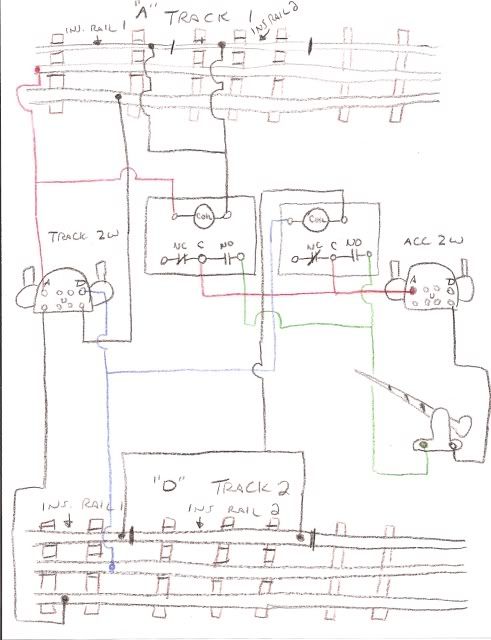 "A" TRACK 1
INS. RAIL 1
INS RAIL 2
COIL
NC C NO
COIL
NC C NO
TRACK ZW
A D
U
ACC ZW
A D
U
"D" TRACK 2
INS. RAIL 1
INS RAIL 2